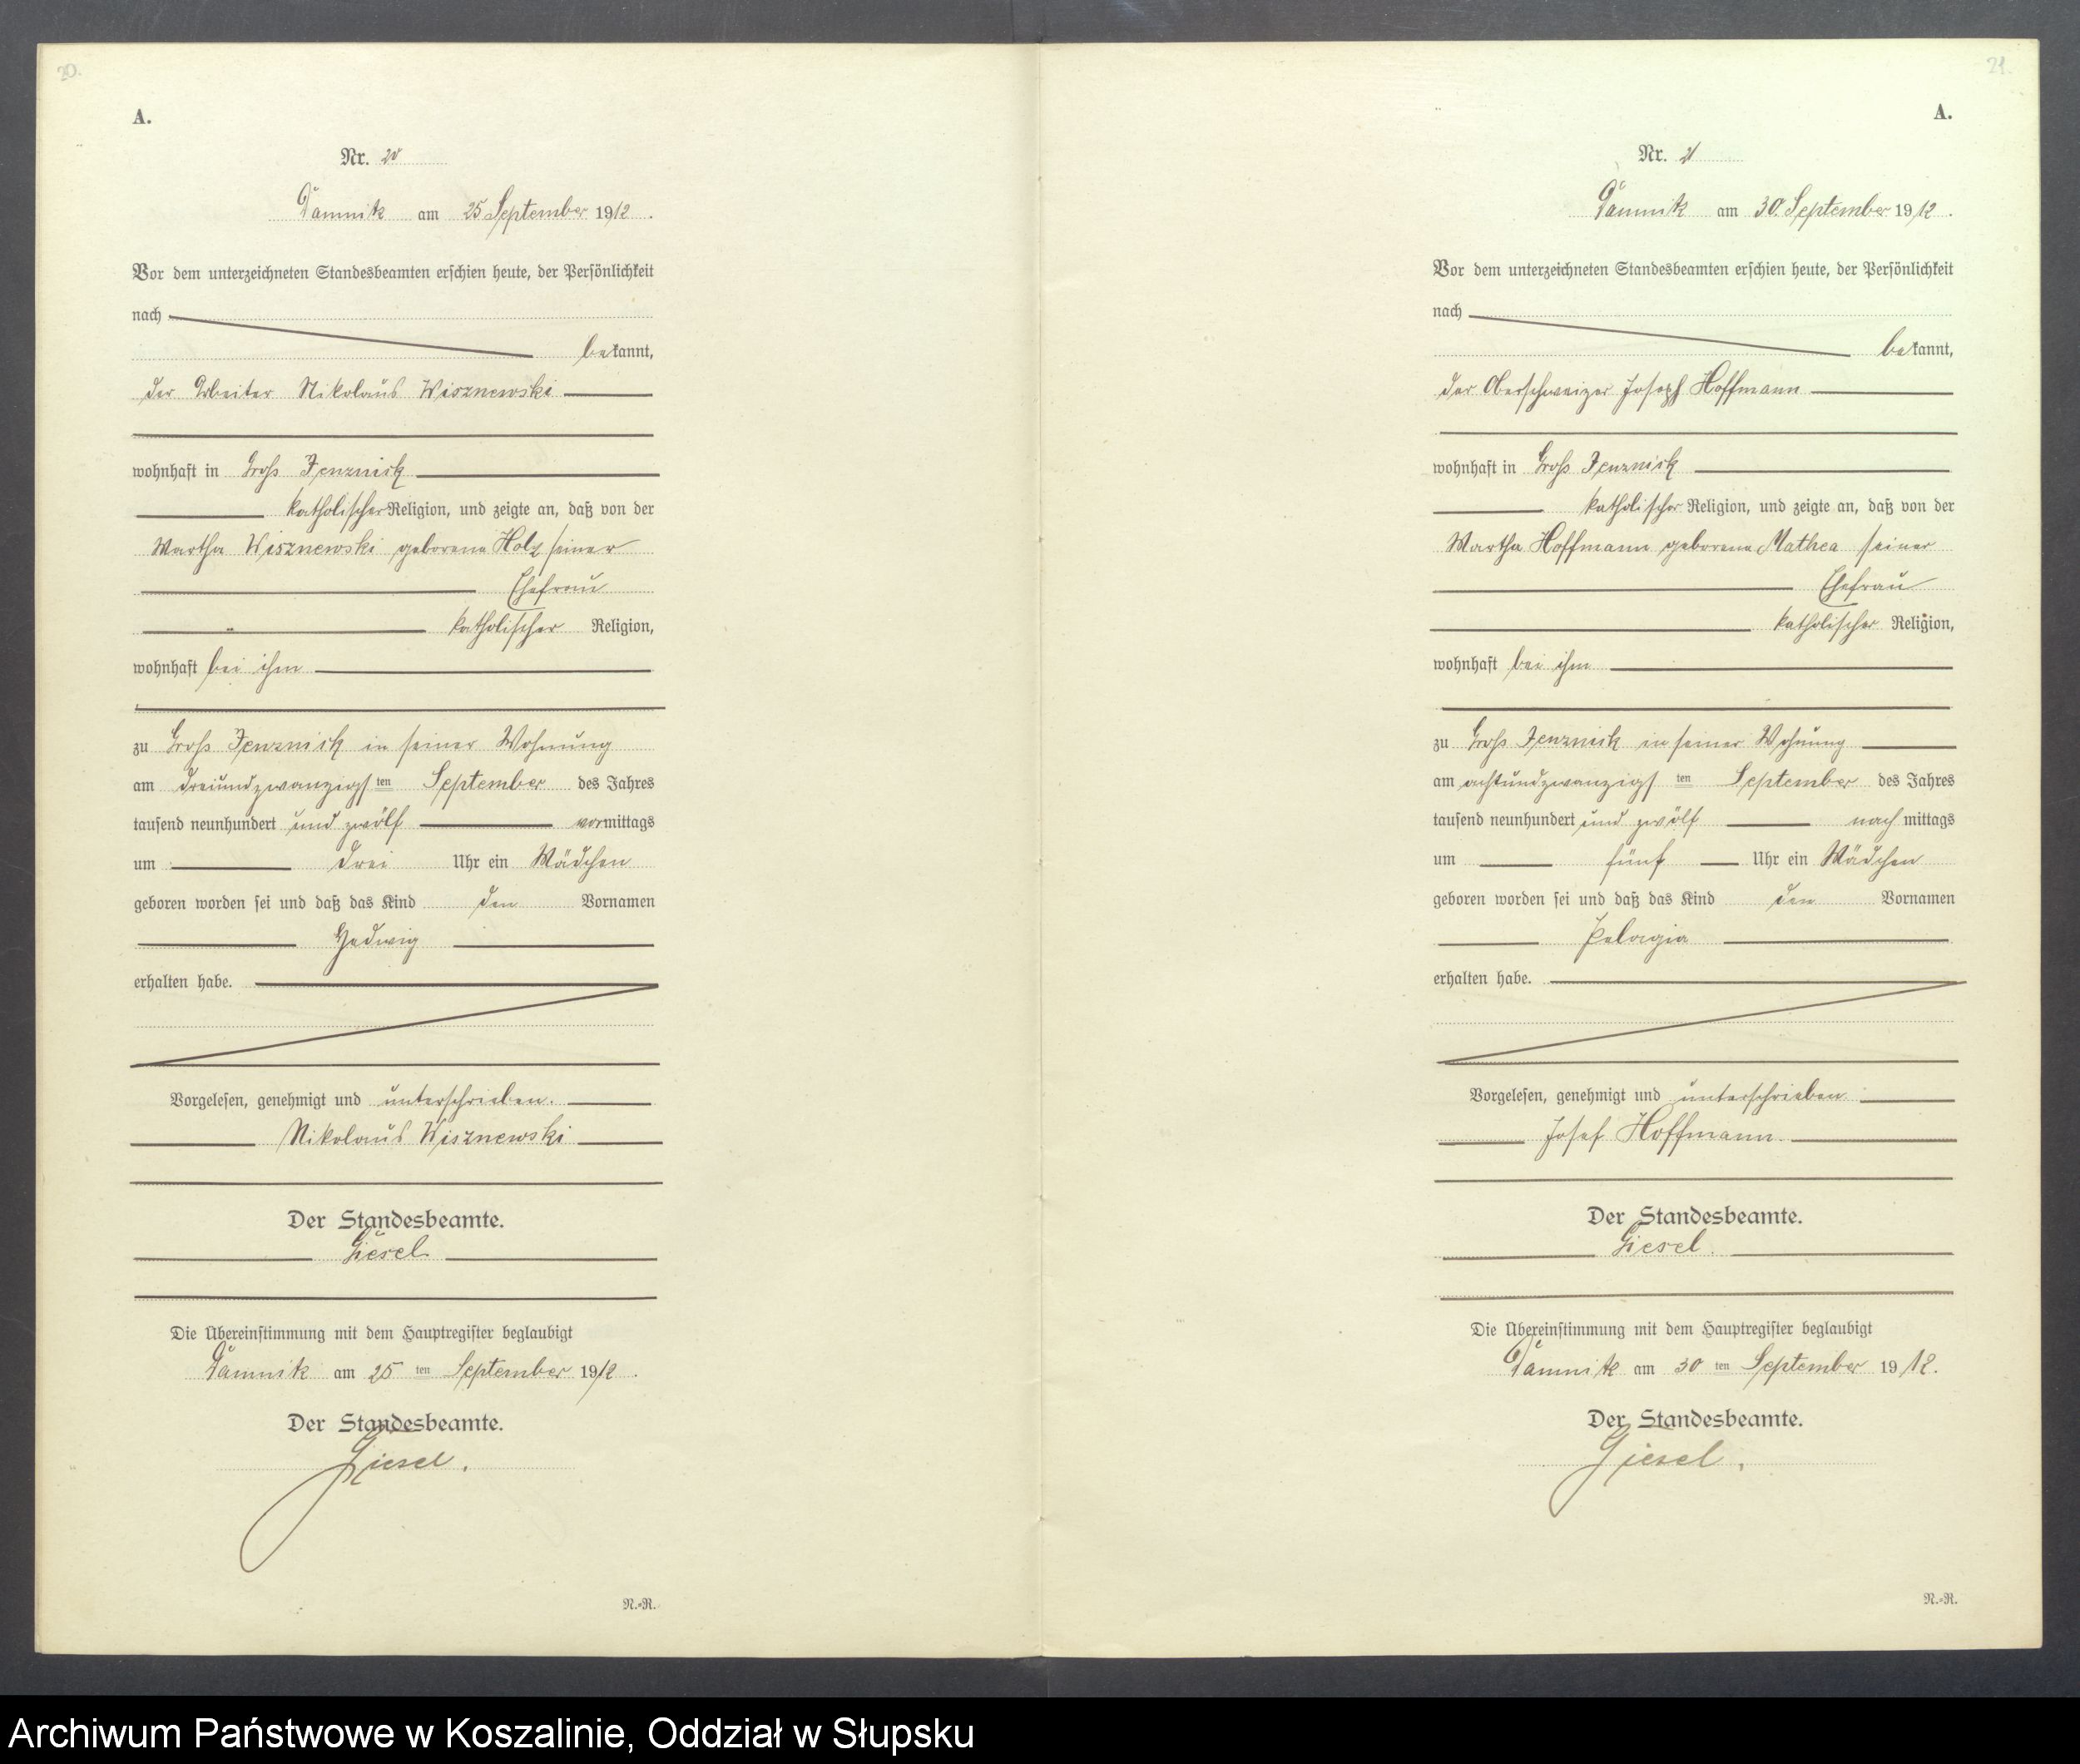 20.
A.
Nr. 20
Damnik am 25 September 1912.
Vor dem unterzeichneten Standesbeamten erschien heute, der Persönlichkeit
nach
bekannt,
der Arbeiter Nikolaus Wisznewski
wohnhaft in Groß Jenznick
katholischer Religion, und zeigte an, daß von der
Martha Wisznewski geborene Holz seiner
Ehefrau
katholischer Religion,
wohnhaft bei ihm
zu Groß Jenznick in seiner Wohnung
am dreiundzwanzigsten September des Jahres
tausend neunhundert und zwölf vormittags
um drei Uhr ein Mädchen
geboren worden sei und daß das Kind den Vornamen
Hedwig
erhalten habe.
Vorgelesen, genehmigt und unterschrieben.
Nikolaus Wisznewski
Der Standesbeamte.
Giesel
Die Übereinstimmung mit dem Hauptregister beglaubigt
Damnik am 25 ten September 1912.
Der Standesbeamte.
Giesel.
N.-R.
21.
A.
Nr. 21
Damnik am 30. September 1912.
Vor dem unterzeichneten Standesbeamten erschien heute, der Persönlichkeit
nach
bekannt,
der Oberschweizer Joseph Hoffmann
wohnhaft in Groß Jenznick
katholischer Religion, und zeigte an, daß von der
Martha Hoffmann geborene Mathea seiner
Ehefrau
katholischer Religion,
wohnhaft bei ihm
zu Groß Jenznick in seiner Wohnung
am achtundzwanzigsten September des Jahres
tausend neunhundert und zwölf nach mittags
um fünf Uhr ein Mädchen
geboren worden sei und daß das Kind den Vornamen
Pelagia
erhalten habe.
Vorgelesen, genehmigt und unterschrieben
Josef Hoffmann
Der Standesbeamte.
Giesel.
Die Übereinstimmung mit dem Hauptregister beglaubigt
Damnik am 30 ten September 1912.
Der Standesbeamte.
Giesel.
N.-R.
Archiwum Państwowe w Koszalinie, Oddział w Słupsku